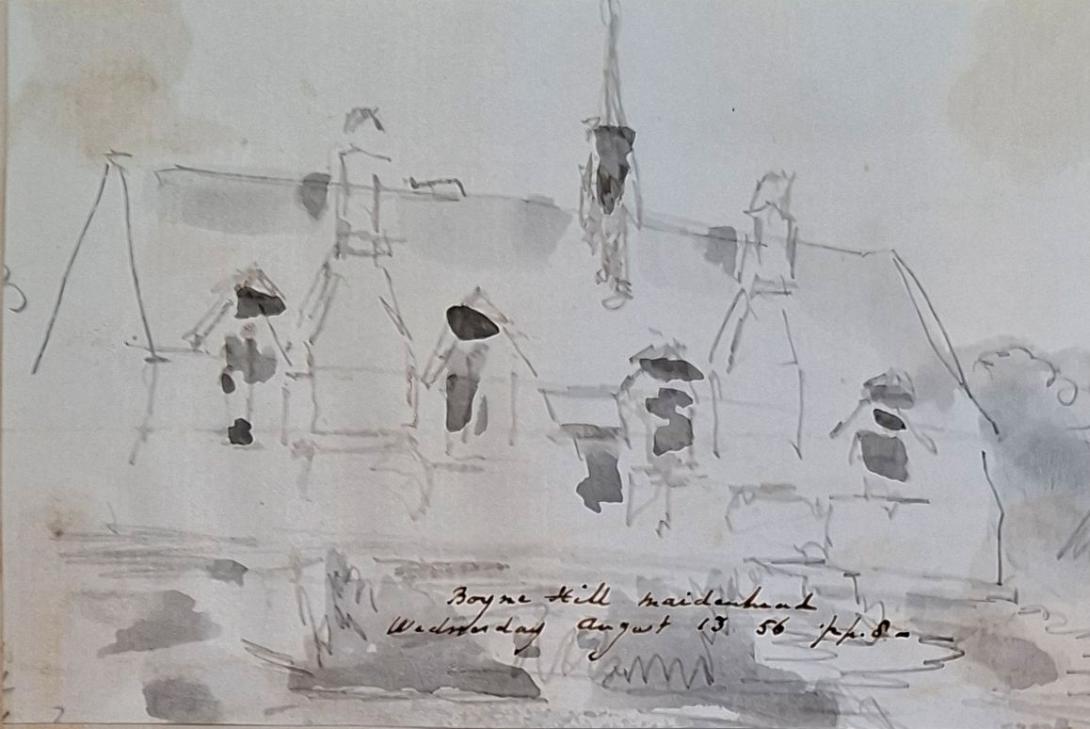 Boyne Hill Maidenhead
Wednesday August 13 56 p.p. 8